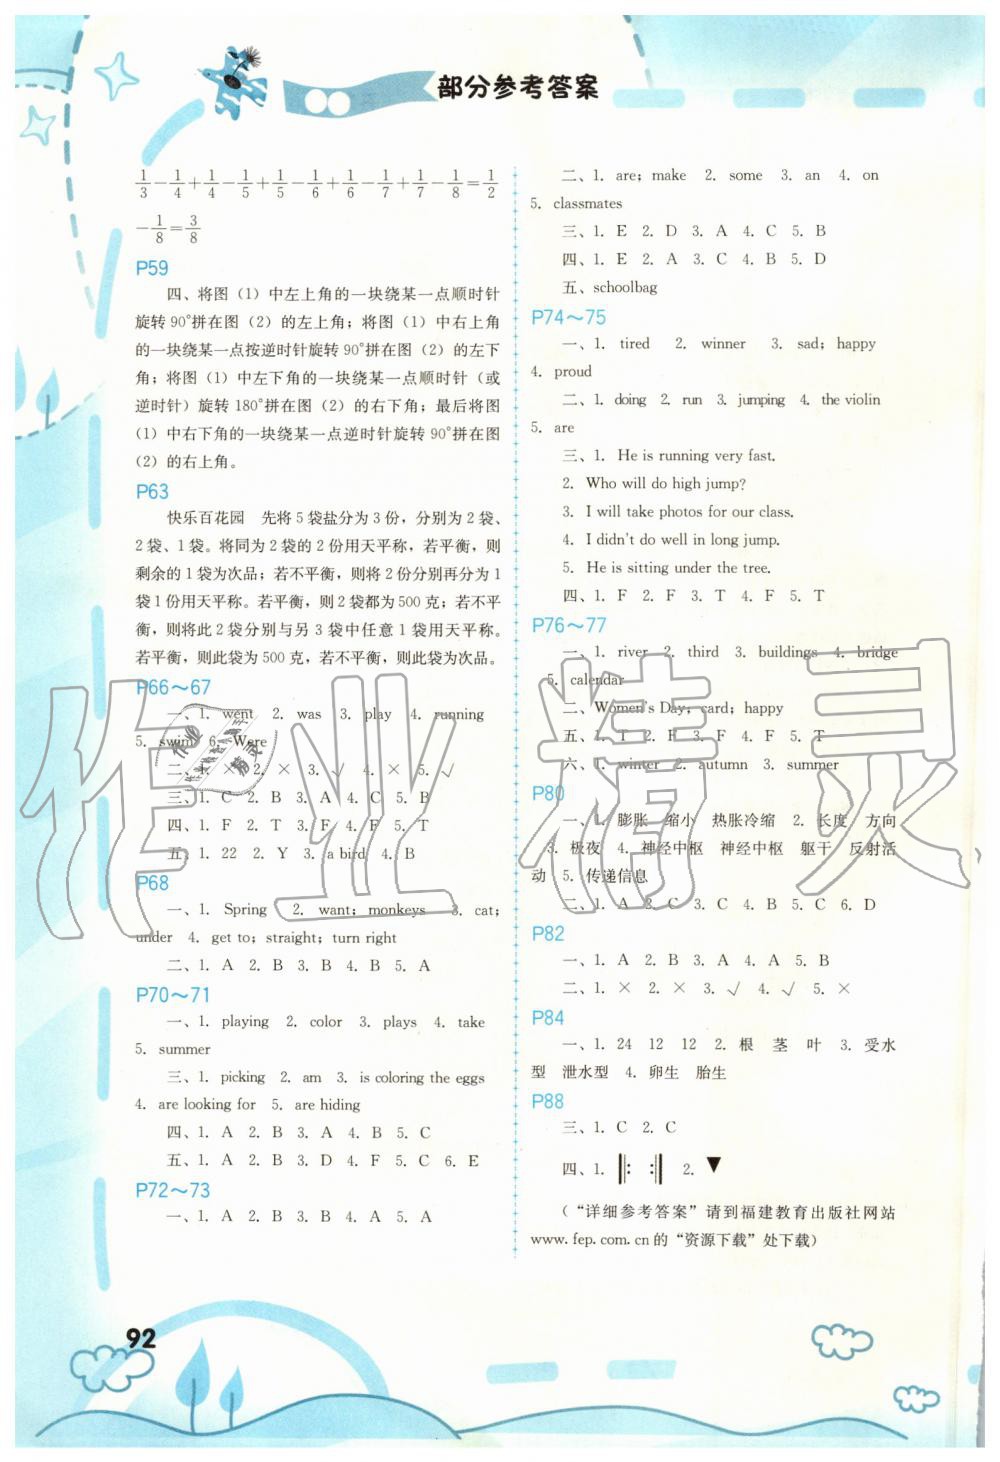 部分参考答案
1/3-1/4+1/4-1/5+1/5-1/6+1/6-1/7+1/7-1/8=1/2
-1/8=3/8
P59
四、将图(1)中左上角的一块绕某一点顺时针
旋转90°拼在图(2)的左上角;将图(1)中右上角
的一块绕某一点按逆时针旋转90°拼在图(2)的左下
角;将图(1)中左下角的一块绕某一点顺时针(或
逆时针)旋转180°拼在图(2)的右下角;最后将图
(1)中右下角的一块绕某一点逆时针旋转90°拼在图
(2)的右上角。
P63
快乐百花园 先将5袋盐分为3份,分别为2袋、
2袋、1袋。将同为2袋的2份用天平称,若平衡,则
剩余的1袋为次品;若不平衡,则将2份分别再分为1
袋1份用天平称。若平衡,则2袋都为500克;若不平
衡,则将此2袋分别与另3袋中任意1袋用天平称。
若平衡,则此袋为500克,若不平衡,则此袋为次品。
P66～67
一、1. went 2. was 3. play 4. running
5. swim 6. Were
二、1. × 2. × 3. √ 4. × 5. √
三、1. C 2. B 3. A 4. C 5. B
四、1. F 2. T 3. F 4. F 5. T
五、1. 22 2. Y 3. a bird 4. B
P68
一、1. Spring 2. want; monkeys 3. cat;
under 4. get to; straight; turn right
二、1. A 2. B 3. B 4. B 5. A
P70～71
一、1. playing 2. color 3. plays 4. take
5. summer
三、1. picking 2. am 3. is coloring the eggs
4. are looking for 5. are hiding
四、1. A 2. B 3. A 4. B 5. C
五、1. A 2. B 3. D 4. F 5. C 6. E
P72～73
一、1. A 2. B 3. B 4. A 5. A
二、1. are; make 2. some 3. an 4. on
5. classmates
三、1. E 2. D 3. A 4. C 5. B
四、1. E 2. A 3. C 4. B 5. D
五、schoolbag
P74～75
一、1. tired 2. winner 3. sad; happy
4. proud
二、1. doing 2. run 3. jumping 4. the violin
5. are
三、1. He is running very fast.
2. Who will do high jump?
3. I will take photos for our class.
4. I didn't do well in long jump.
5. He is sitting under the tree.
四、1. F 2. F 3. T 4. F 5. T
P76～77
一、1. river 2. third 3. buildings 4. bridge
5. calendar
二、Women's Day; card; happy
五、1. T 2. F 3. F 4. F 5. T
六、1. winter 2. autumn 3. summer
P80
一、1. 膨胀 缩小 热胀冷缩 2. 长度 方向
3. 极夜 4. 神经中枢 神经中枢 躯干 反射活
动 5. 传递信息
二、1. A 2. C 3. C 4. A 5. C 6. D
P82
一、1. A 2. B 3. A 4. A 5. B
二、1. × 2. × 3. √ 4. √ 5. ×
P84
一、1. 24 12 12 2. 根 茎 叶 3. 受水
型 泄水型 4. 卵生 胎生
P88
三、1. C 2. C
四、1. ‖: :‖ 2. ▼
(“详细参考答案”请到福建教育出版社网站
www.fep.com.cn的“资源下载”处下载)
92
作业精灵